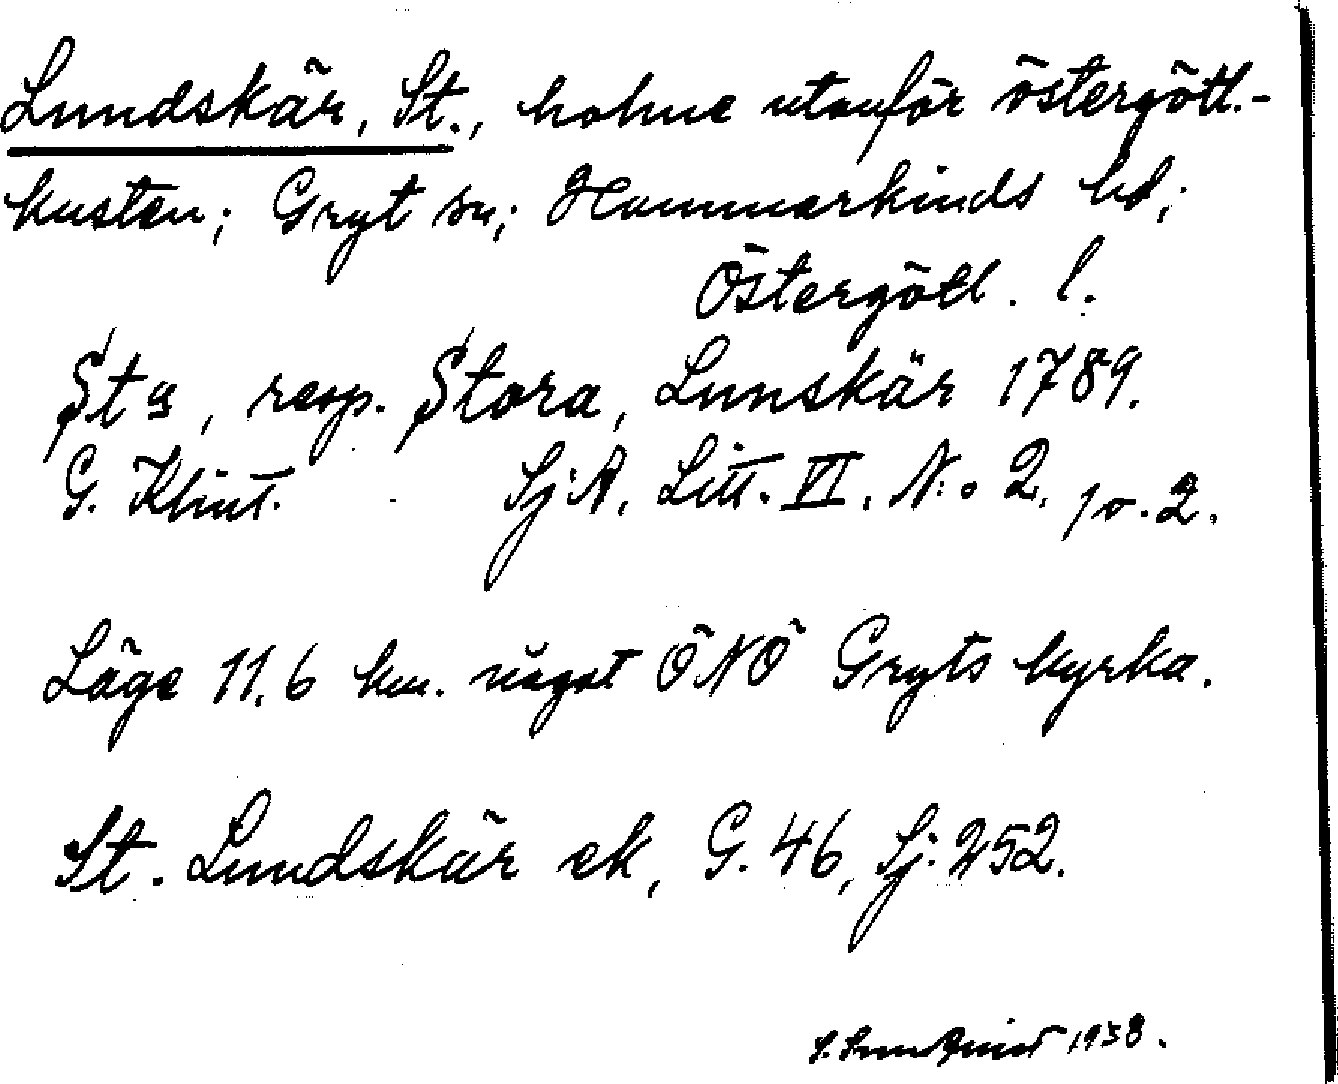 Lundskär, St., holme utanför östergötl.-
kusten; Gryt sn; Hammarkinds hd;
Östergötl. l.
St a, resp. Stora, Lunskär 1789.
G. Klint. Sj:A, Litt. VI, N:o 2, p. 2.
Läge 11,6 km. något ÖNÖ Gryts kyrka.
St. Lundskär ek, G. 46, Sj: 252.
1938.